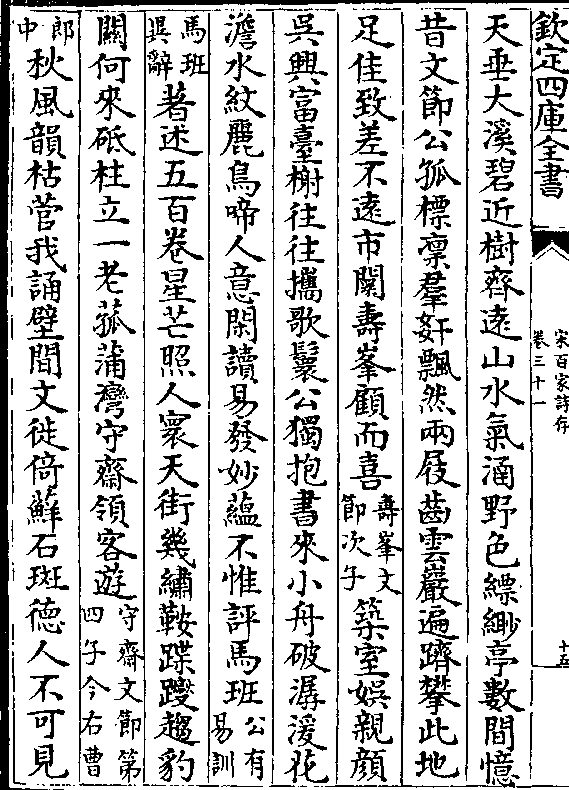 欽定四庫全書
宋百家詩存
卷三十一
十五
天垂大溪碧近樹齊遠山水氣涵野色縹緲亭數間憶
昔文節公孤標凛羣奸飄然兩屐齒雲巖遍躋攀此地
足佳致差不遠市闤壽峯顧而喜壽峯文節次子築室娛親顔
吳興富臺榭往往攜歌鬟公獨抱書來小舟破潺湲花
澹水紋麗鳥啼人意閑讀易發妙蘊不惟評馬班公有易訓
馬班異辭著述五百卷星芒照人寰天街幾繡鞍蹀躞趨豹
關何來砥柱立一老菰蒲灣守齋領客遊守齋文節第四子今右曹
郎中秋風韻枯菅我誦壁間文徙倚蘚石斑德人不可見